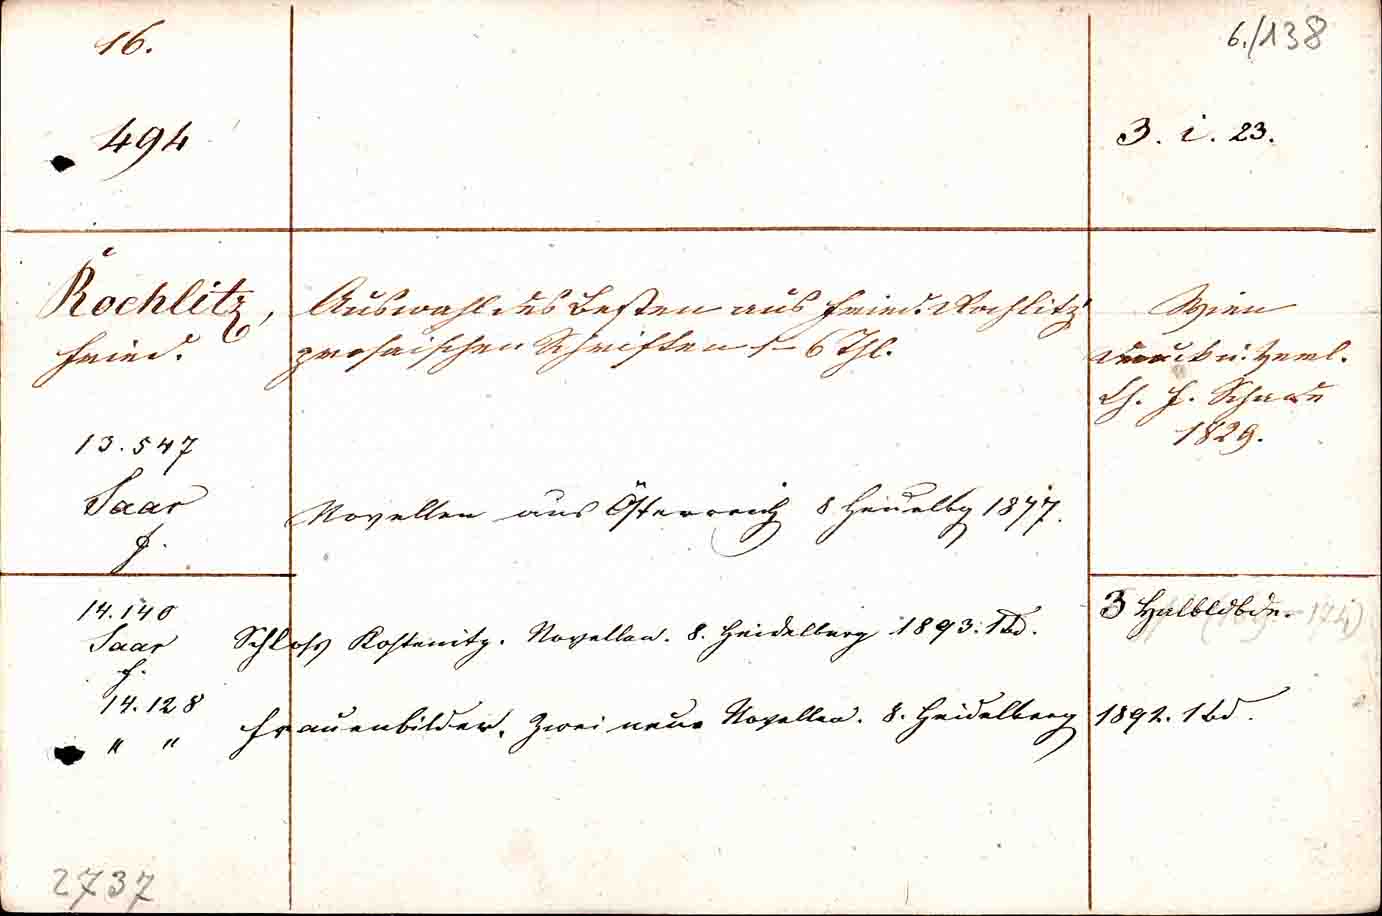 16.
6./138
494
3. i. 23.
Rochlitz,
Fried.
Auswahl des Besten aus Fried. Rochlitz'
prosaischen Schriften 1–6 Thl.
Wien
Druck u. Verl.
Ch. F. Schade
1829.
13.547
Saar
F.
Novellen aus Österreich 8 Heidelbg 1877.
14.140
Saar
F.
Schloss Kostenitz. Novellen. 8. Heidelberg 1893. 1 Bd.
3 Halbldbde.
14.128
" "
Frauenbilder. Zwei neue Novellen. 8. Heidelberg 1892. 1 Bd.
2737